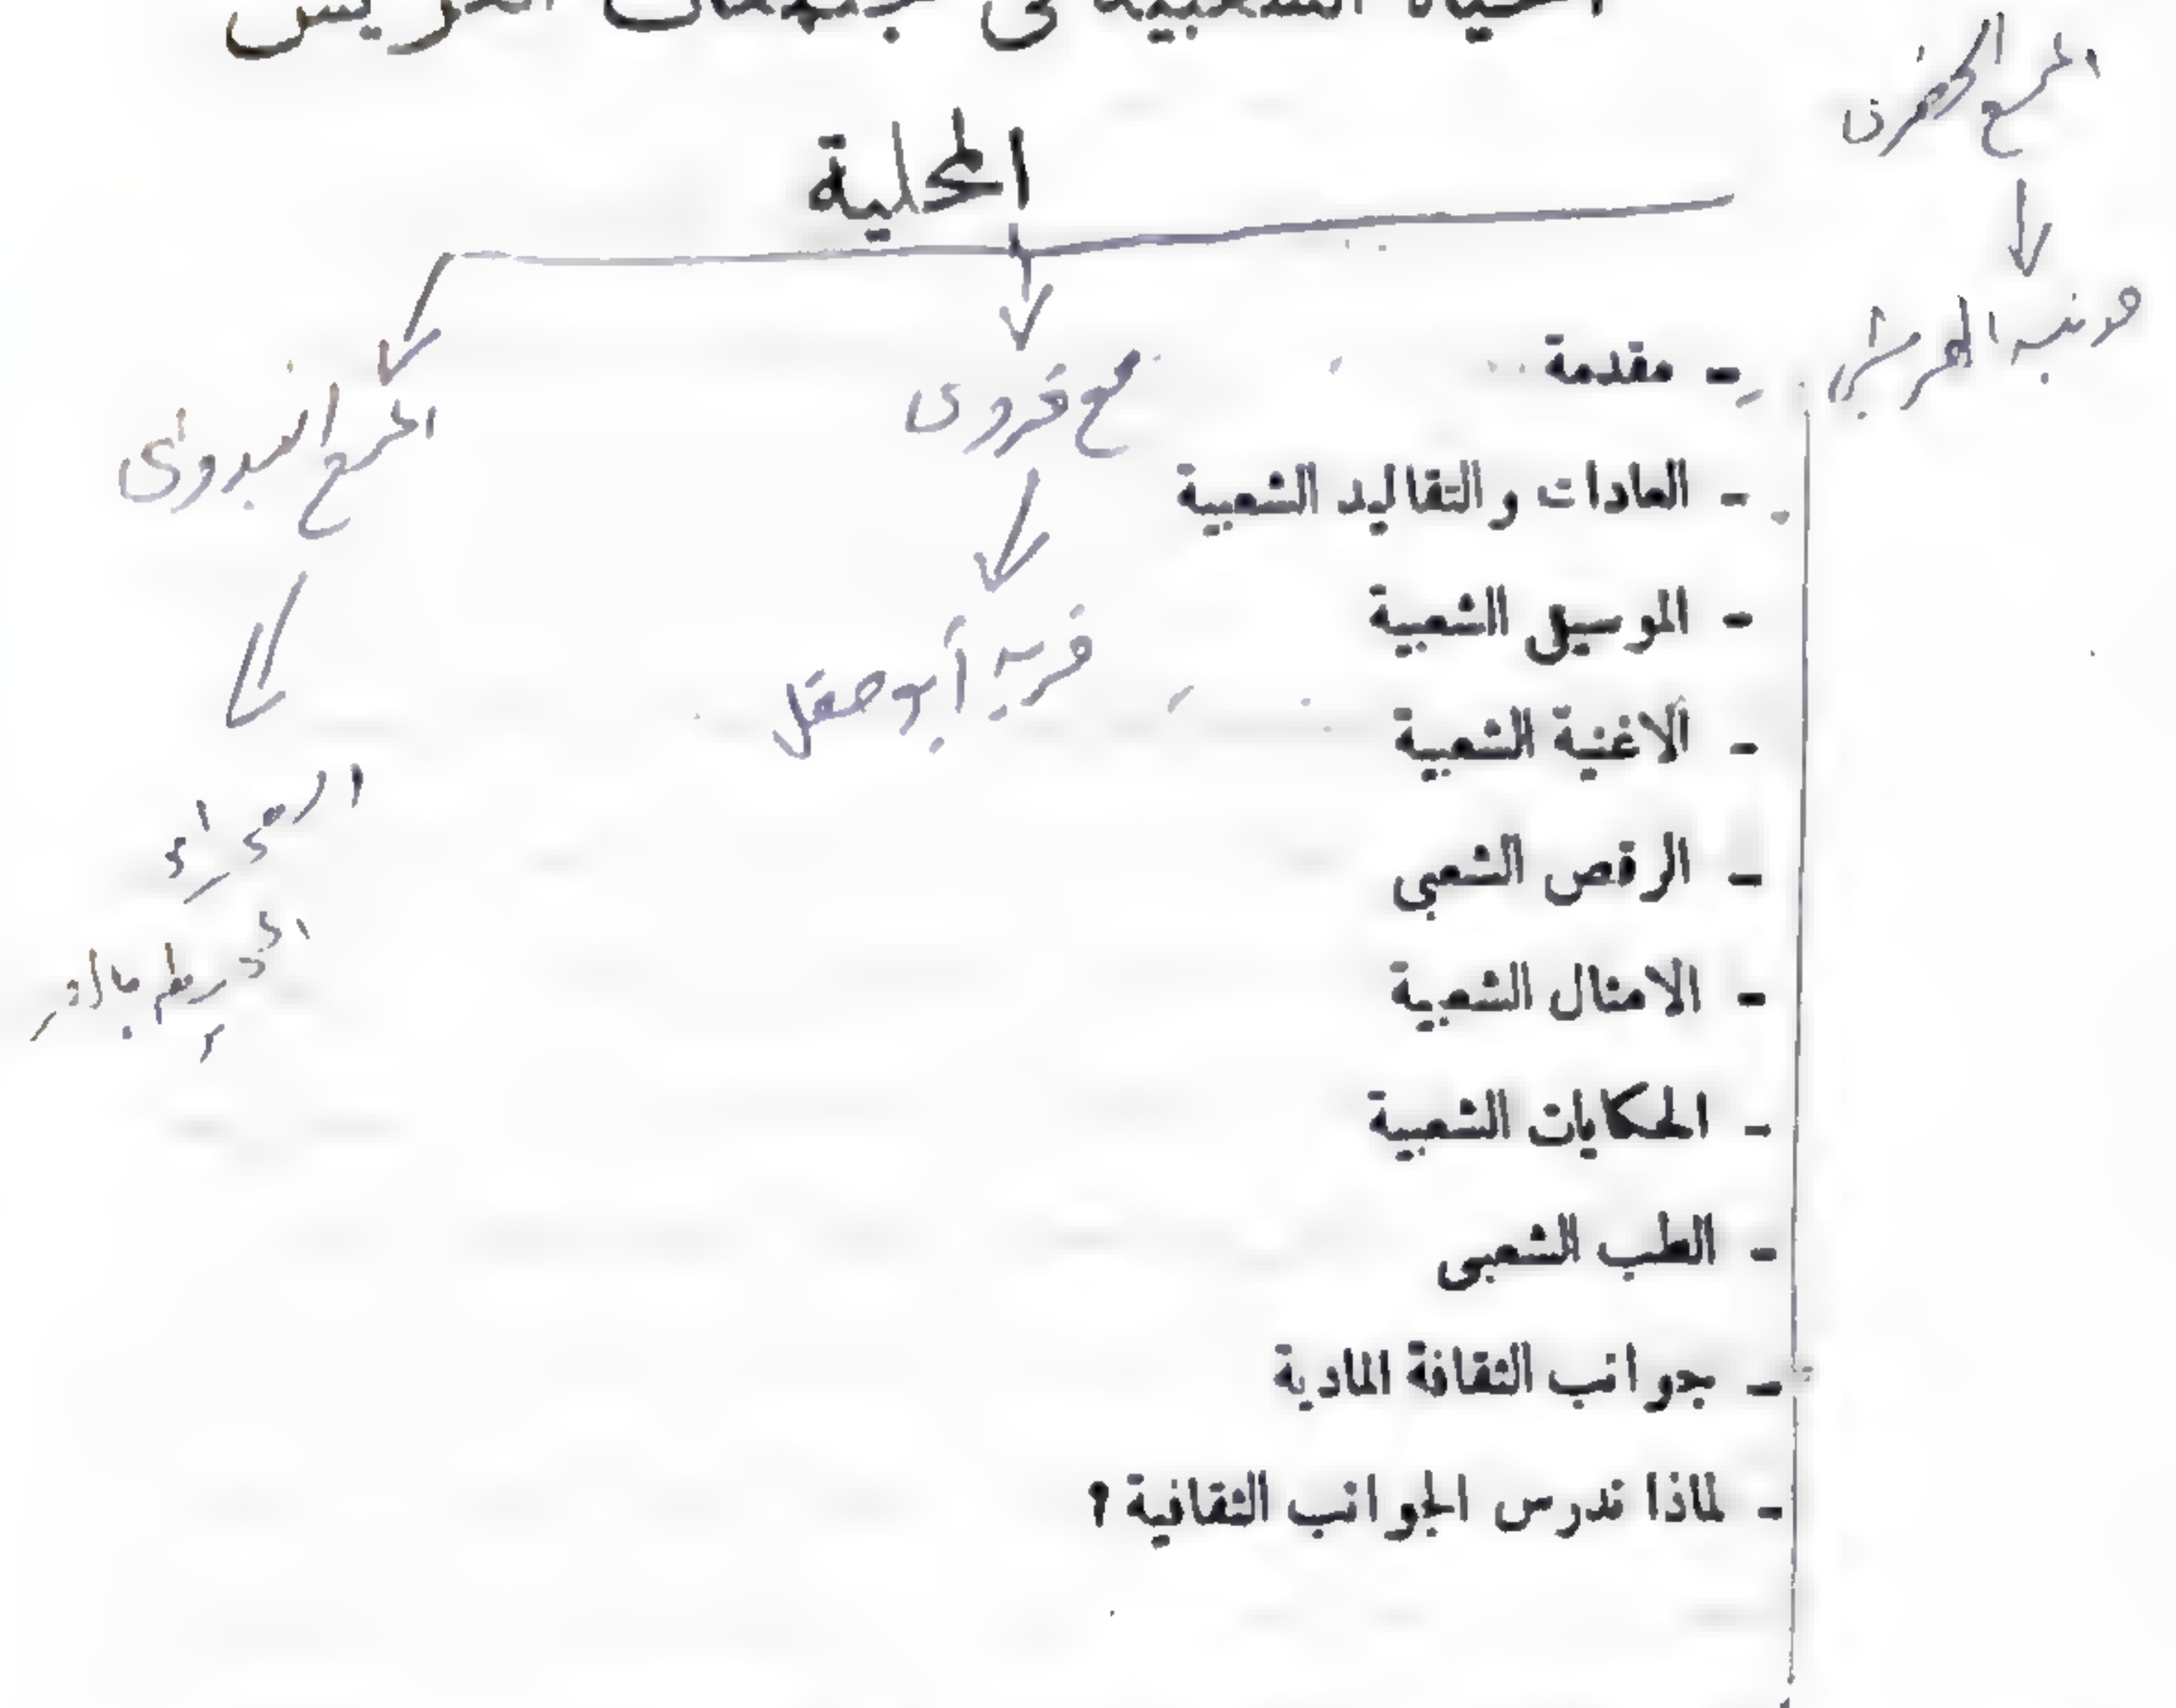 الحياة الشعبية فى مجتمعات العريش
المحلية
المجتمع الحضرى
مدينة العريش
مجتمع قروى
قرية أبو صقل
المجتمع البدوى
- مقدمة
- العادات والتقاليد الشعبية
- الموسيقى الشعبية
- الاغنية الشعبية
- الرقص الشعبي
- الامثال الشعبية
- الحكايات الشعبية
- الطب الشعبى
- جوانب الثقافة المادية
- لماذا ندرس الجوانب الثقافية ؟